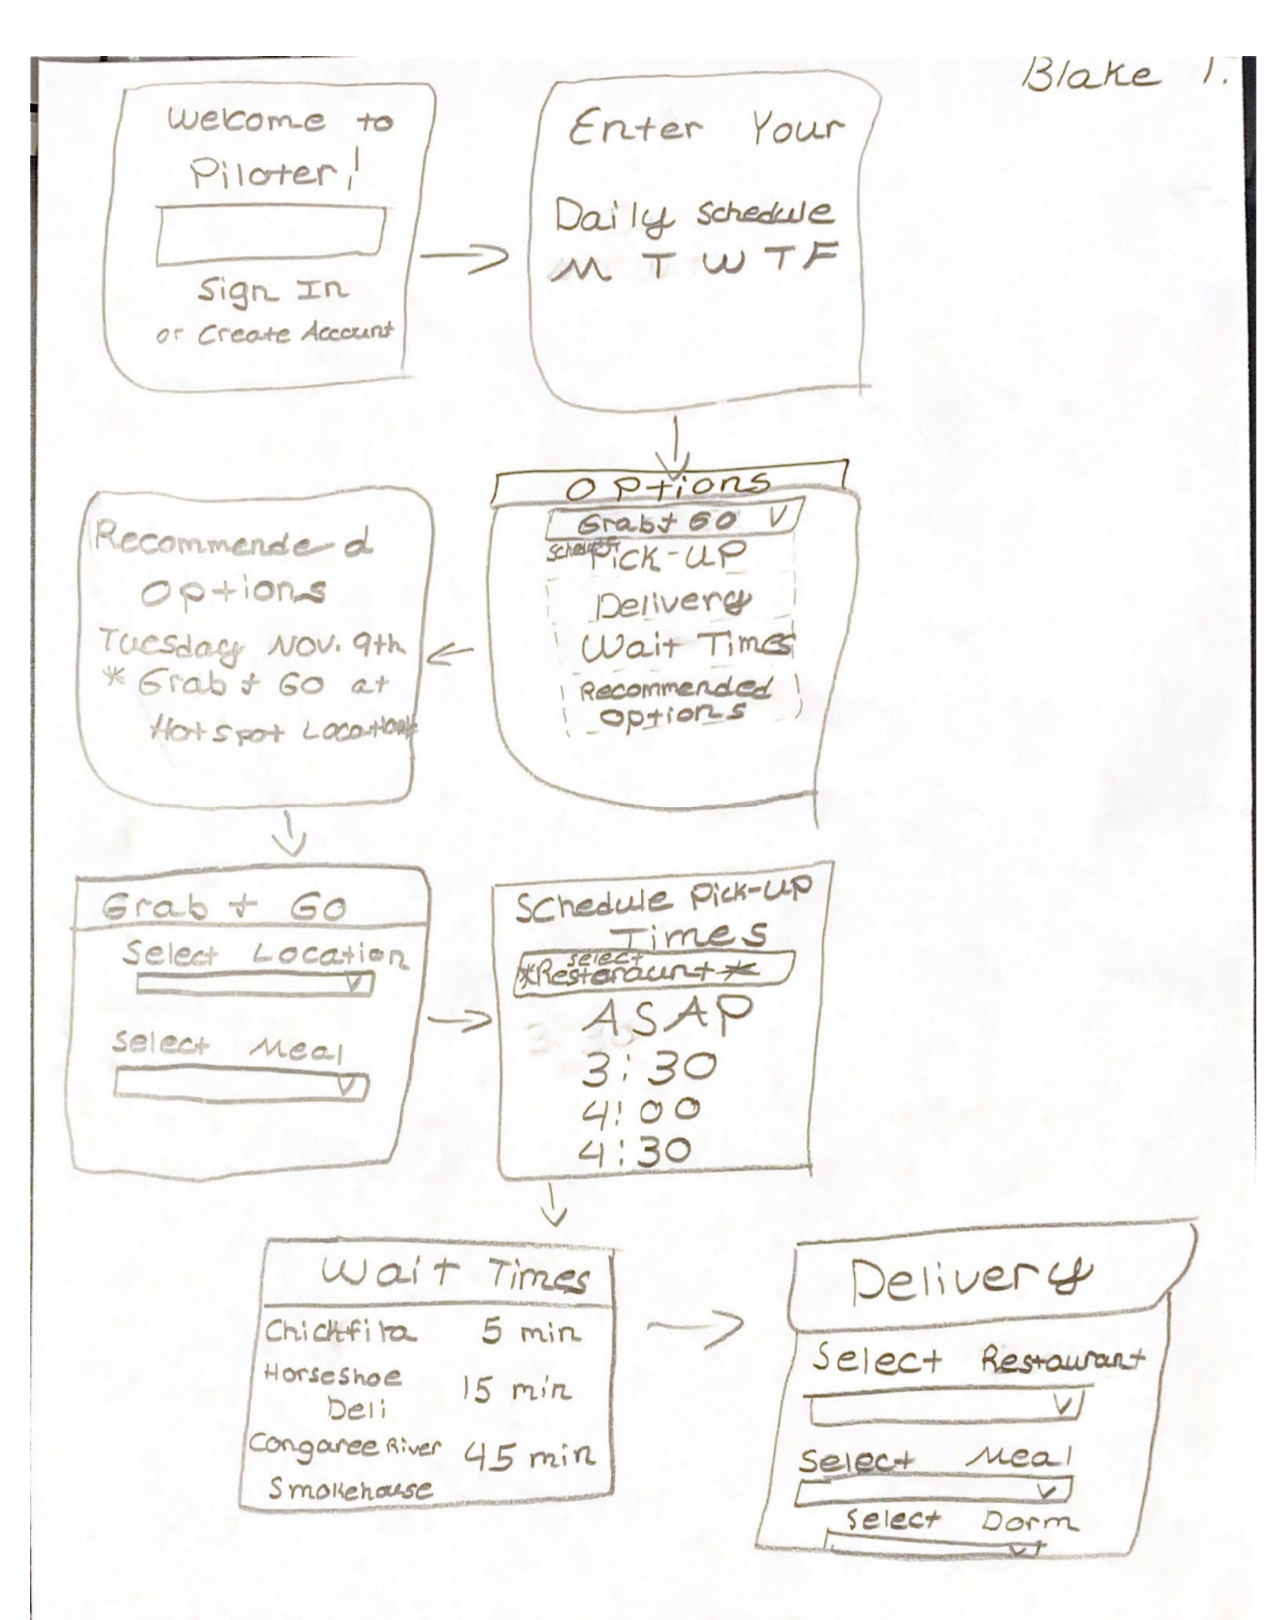 Blake T.
Welcome to
Piloter!
Sign In
or Create Account
Enter Your
Daily Schedule
M T W T F
Options
Grab + GO V
Schedule
Pick-UP
Delivery
Wait Times
Recommended
Options
Recommended
Options
Tuesday Nov. 9th
* Grab + GO at
Hotspot Location*
Grab + GO
Select Location
Select Meal
Schedule Pick-UP
Times
select
*Resteraunt*
ASAP
3:30
4:00
4:30
Wait Times
Chickfila 5 min
Horseshoe
Deli 15 min
Congaree River 45 min
Smokehouse
Delivery
Select Restaurant
Select Meal
Select Dorm